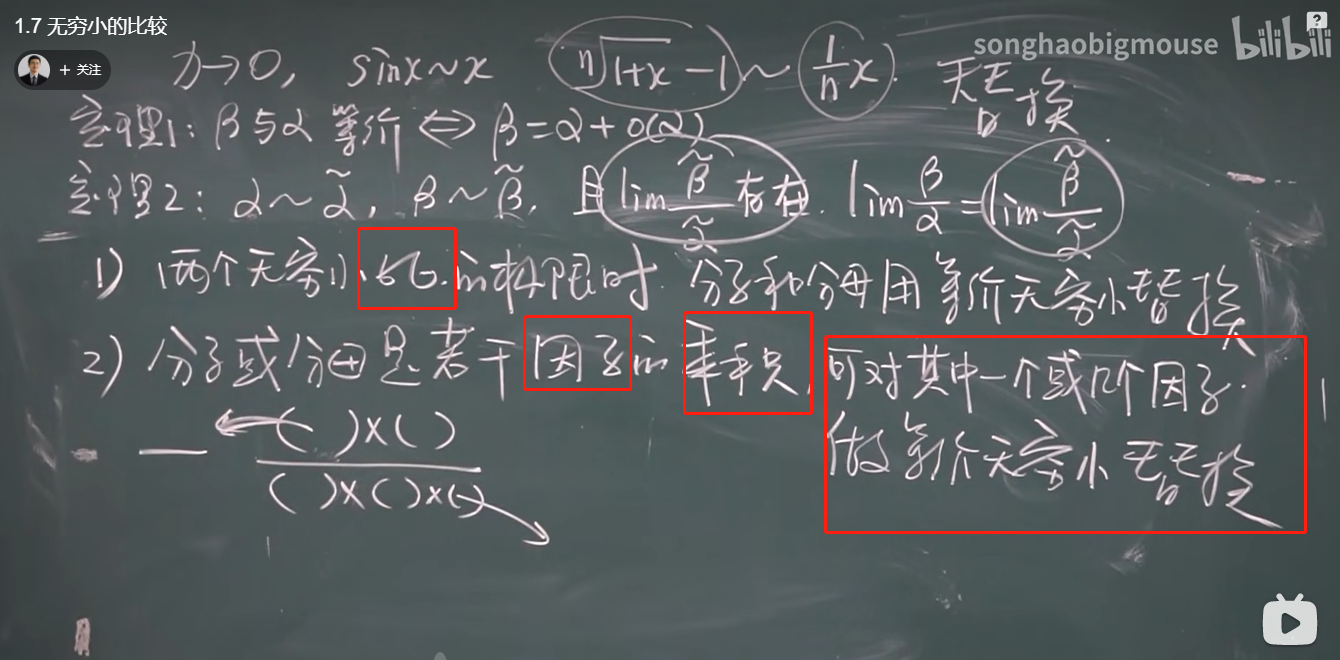 1.7 无穷小的比较
+ 关注
songhaobigmouse bilibili
?
x→0, sinx~x ⁿ√(1+x) - 1 ~ 1/n x. 替换
定理1: β与α等价 ⇔ β=α+o(α)
定理2: α~α̃, β~β̃, 且lim β̃/α̃ 存在. lim β/α = lim β̃/α̃
1) 两个无穷小比的极限时. 分子和分母用等价无穷小替换
2) 分子或分母是若干因子的乘积, 可对其中一个或几个因子.
做等价无穷小替换
( )×( )
( )×( )×( )